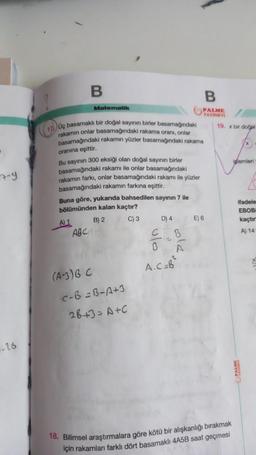 B
B
Matematik
PALME
YAYINEVİ
17. Üç basamaklı bir doğal sayının birler basamağındaki
rakamın onlar basamağındaki rakama oranı, onlar
basamağındaki rakamın yüzler basamağındaki rakama
oranına eşittir.
Bu sayının 300 eksiği olan doğal sayının birler
basamağındaki rakamı ile onlar basamağındaki
rakamın farkı, onlar basamağındaki rakamı ile yüzler
basamağındaki rakamın farkına eşittir.
Buna göre, yukarıda bahsedilen sayının 7 ile
bölümünden kalan kaçtır?
A) 1 B) 2 C) 3 D) 4 E) 6
ABC
C/B = B/A
A.C=B²
(A-3)B C
C-B=B-A+3
2B+3=A+C
18. Bilimsel araştırmalara göre kötü bir alışkanlığı bırakmak
için rakamları farklı dört basamaklı 4A5B saat geçmesi
19. x bir doğal
işlemleri
ifadele
EBOB
kaçtır
A) 14
PALME